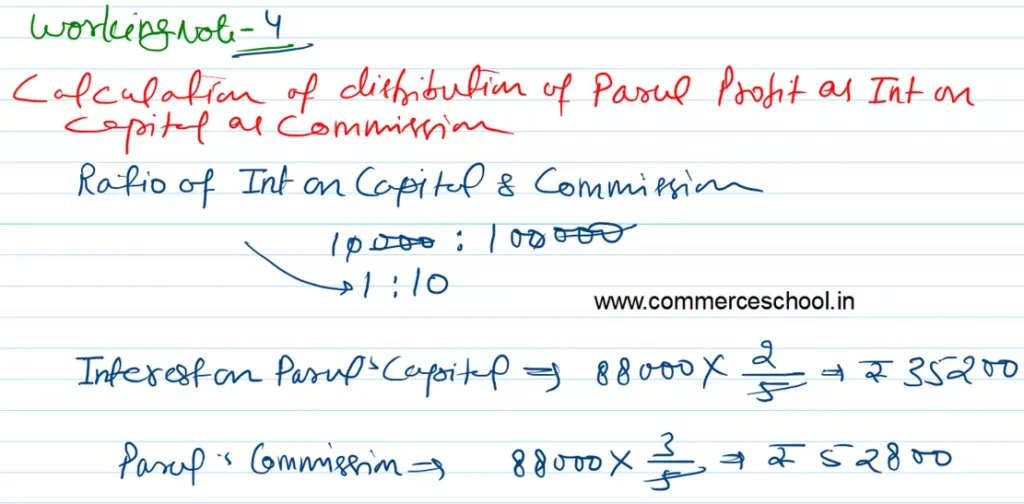 Working Note - 4
Calculation of distribution of Parul Profit as Int on
Capital as Commission
Ratio of Int on Capital & Commission
10000 : 100000
1 : 10
www.commerceschool.in
Interest on Parul's Capital ⇒ 88000 × 2/5 ⇒ ₹ 35200
Parul's Commission ⇒ 88000 × 3/5 ⇒ ₹ 52800